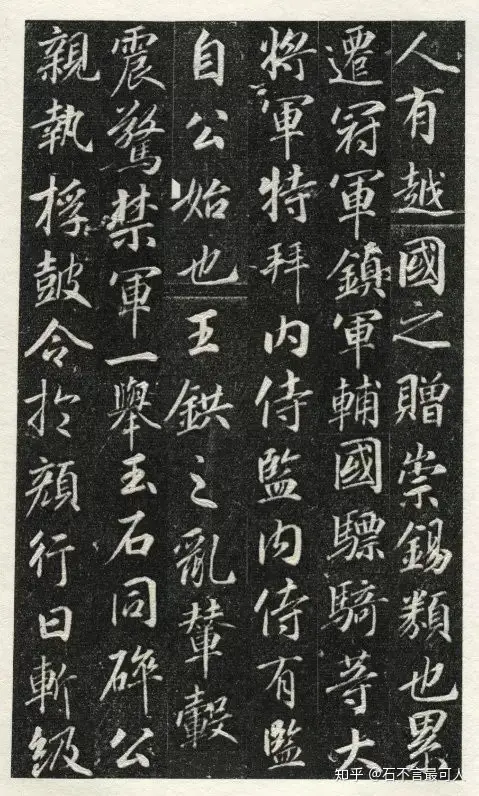 人有越國之贈崇錫類也累
遷冠軍鎮軍輔國驃騎等大
將軍特拜內侍監內侍有監
自公始也王鉷之亂輦轂
震驚禁軍一舉玉石同碎公
親執桴鼓令於顏行曰斬級
知乎 @石不言最可人